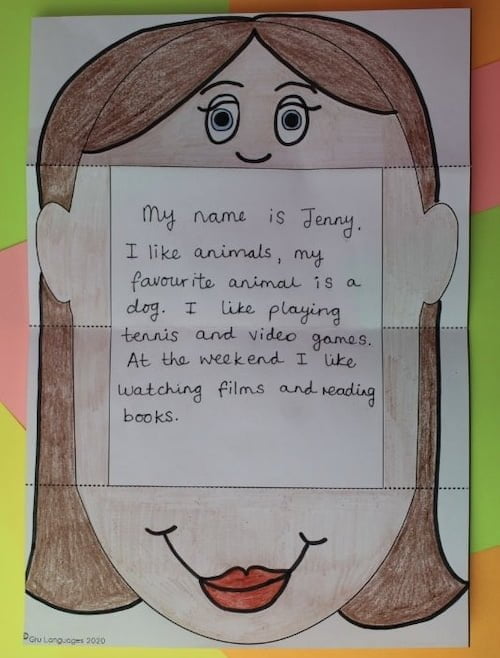 My name is Jenny.
I like animals, my
favourite animal is a
dog. I like playing
tennis and video games.
At the weekend I like
watching films and reading
books.
©Gru Languages 2020